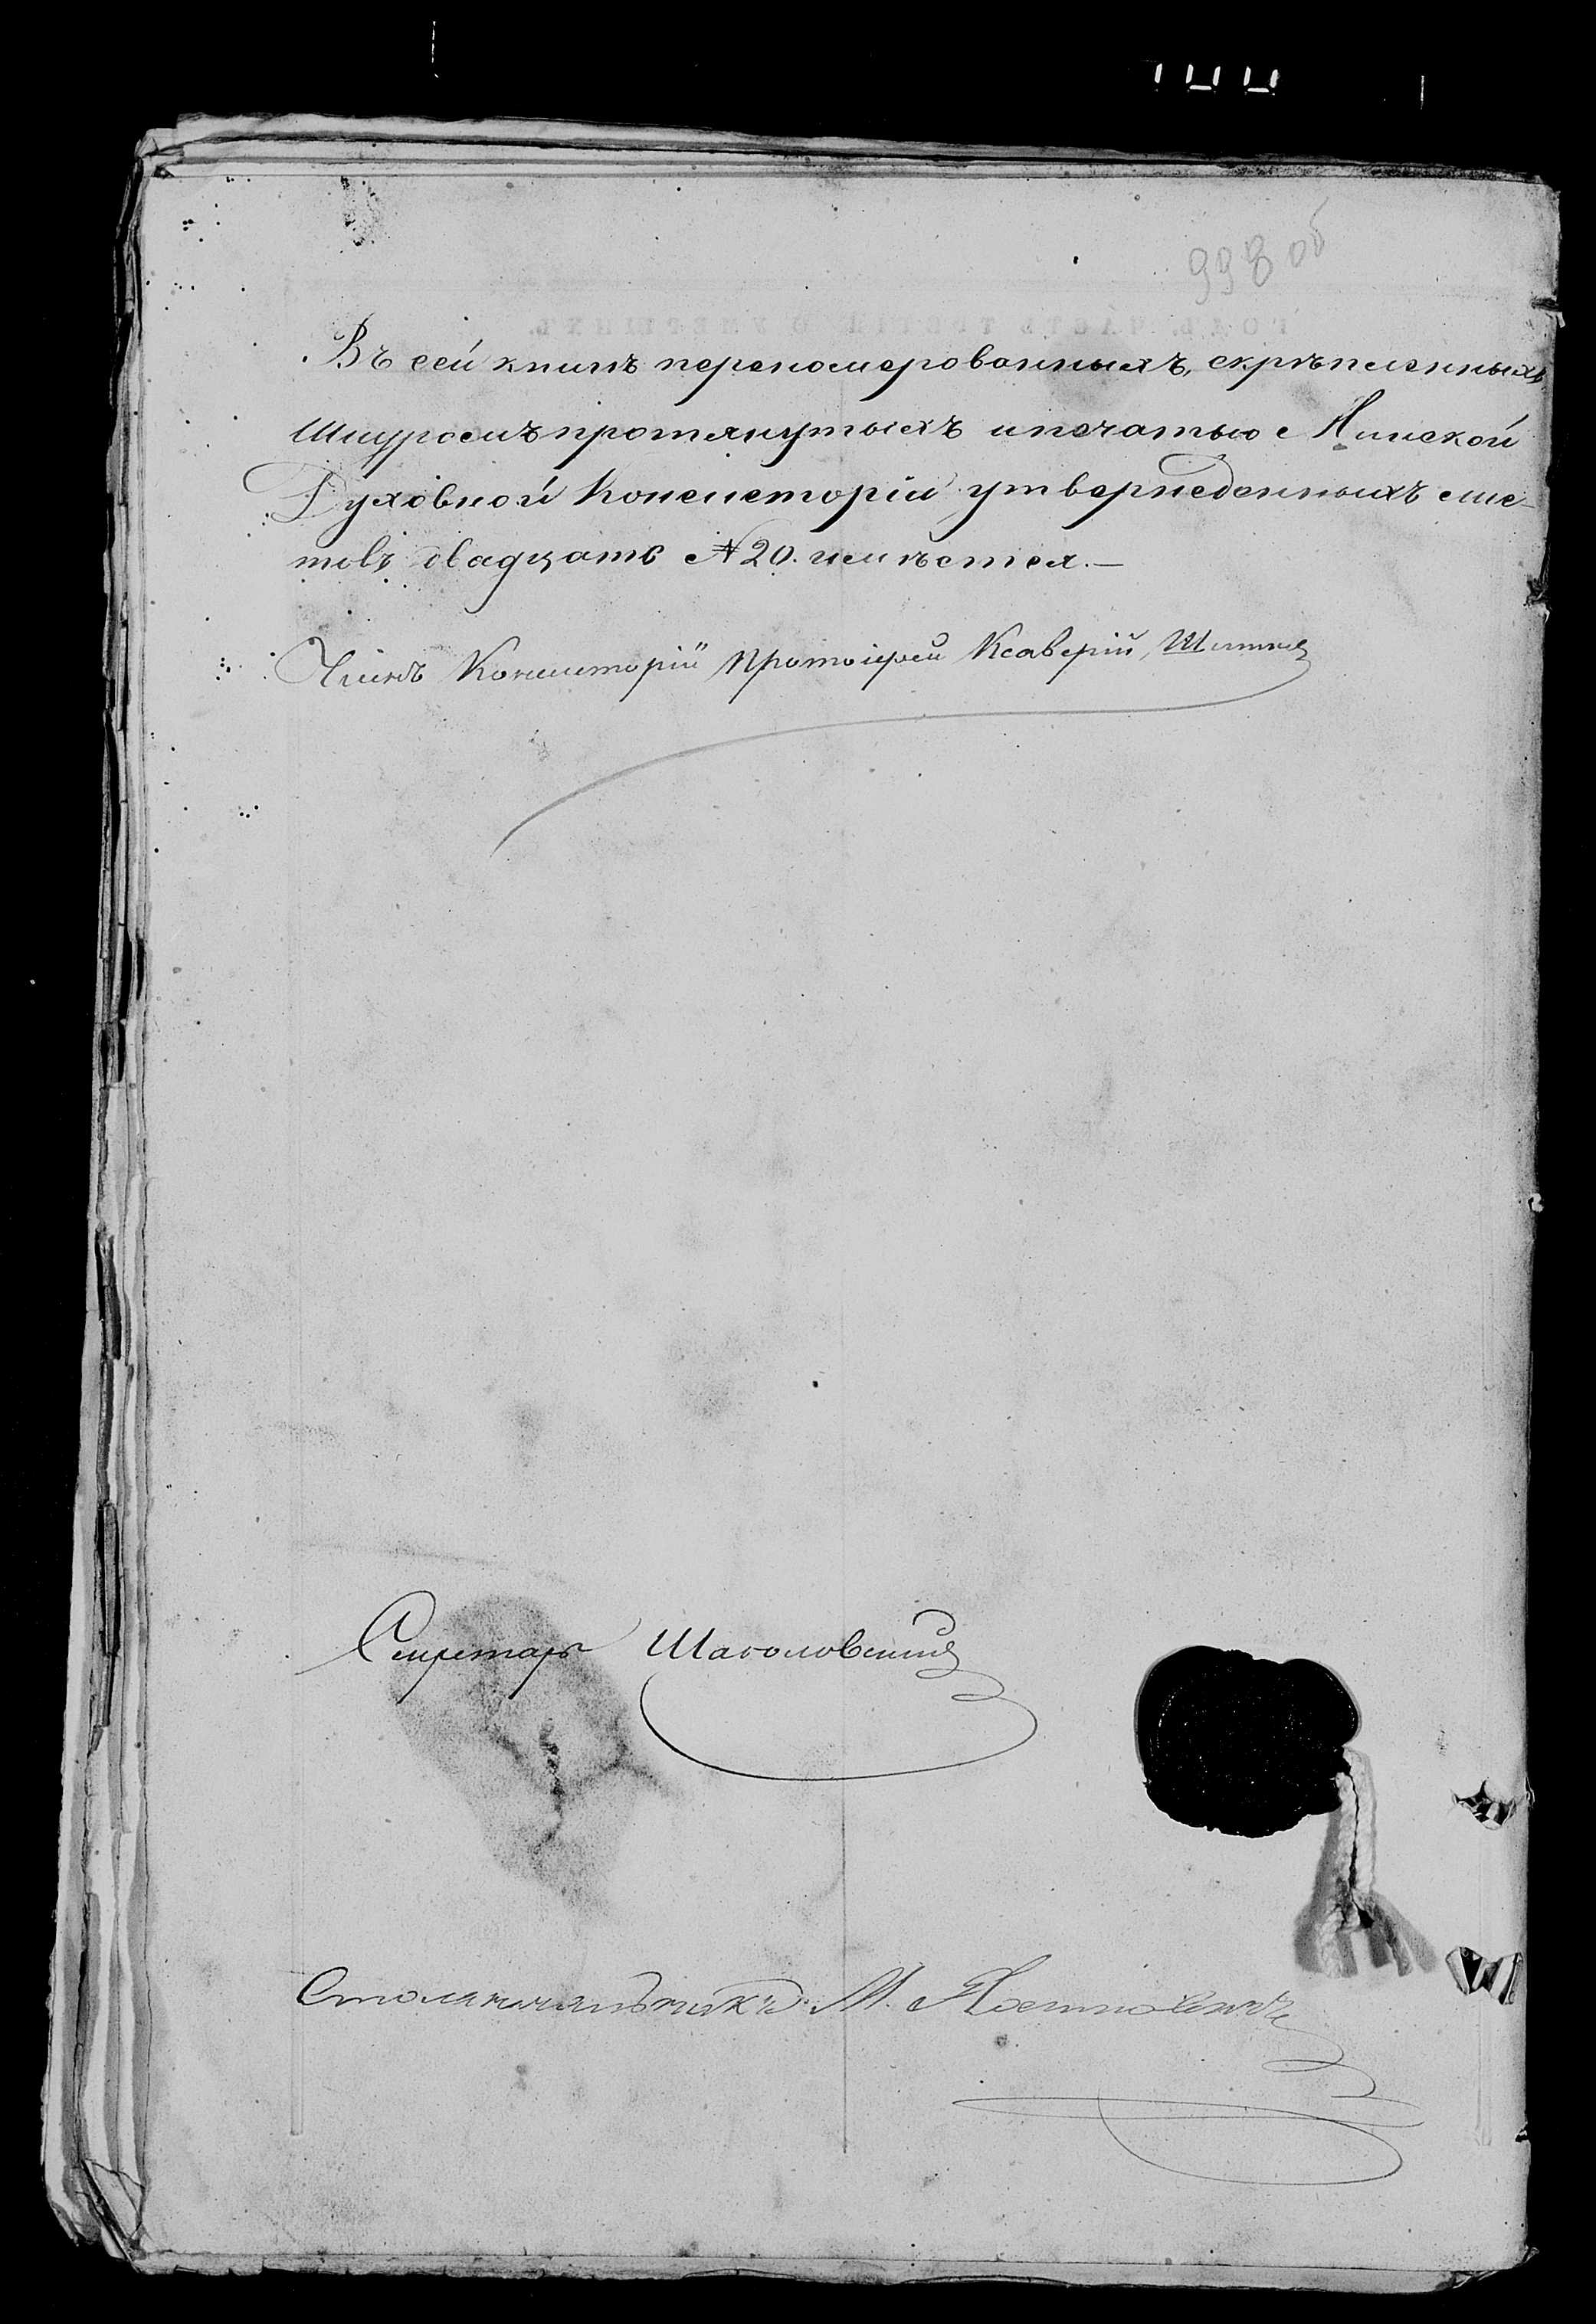 998 об
Въ сей книгѣ переномерованныхъ, скрѣпленныхъ,
Шнуромъ протянутыхъ и печатью Минской
Духовной Консисторіи утвержденныхъ лис-
товъ двадцать №20. имѣется.—
Членъ Консисторіи Протоіерей Ксаверій
Секретарь
Столоначальникъ М.